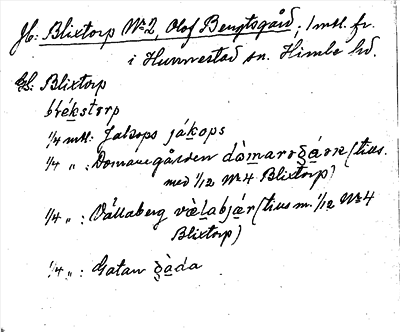 Jb: Blixtorp No 2, Olof Bengtsgård; 1 mtl. fr.
i Hunnestad sn. Himle hd.
Gs: Blixtorp
blékstorp
1/4 mtl: Jakops jákops
1/4 „ : Domaregården dòmaregáon (tills.
med 1/12 No 4 Blixtorp)
1/4 „ : Vällaberg vàlabjár (tills m. 1/12 No 4
Blixtorp)
1/4 „ : Gatan gàda